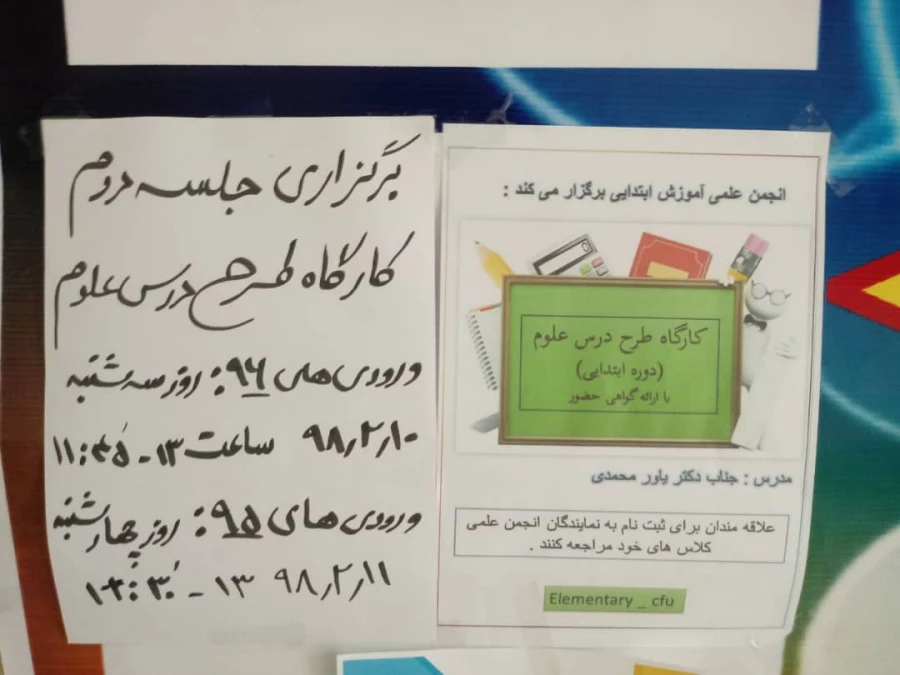 برگزاری جلسه دوم
کارگاه طرح درس علوم
ورودی های ۹۶: روز سه شنبه
۹۸٫۲٫۱۰ ساعت ۱۳ - ۱۱:۴۵
ورودی های ۹۵: روز چهارشنبه
۹۸٫۲٫۱۱ ۱۳ -
انجمن علمی آموزش ابتدایی برگزار می کند :
کارگاه طرح درس علوم
(دوره ابتدایی)
با ارائه گواهی حضور
مدرس : جناب دکتر یاور محمدی
علاقه مندان برای ثبت نام به نمایندگان انجمن علمی
کلاس های خود مراجعه کنند .
Elementary _ cfu